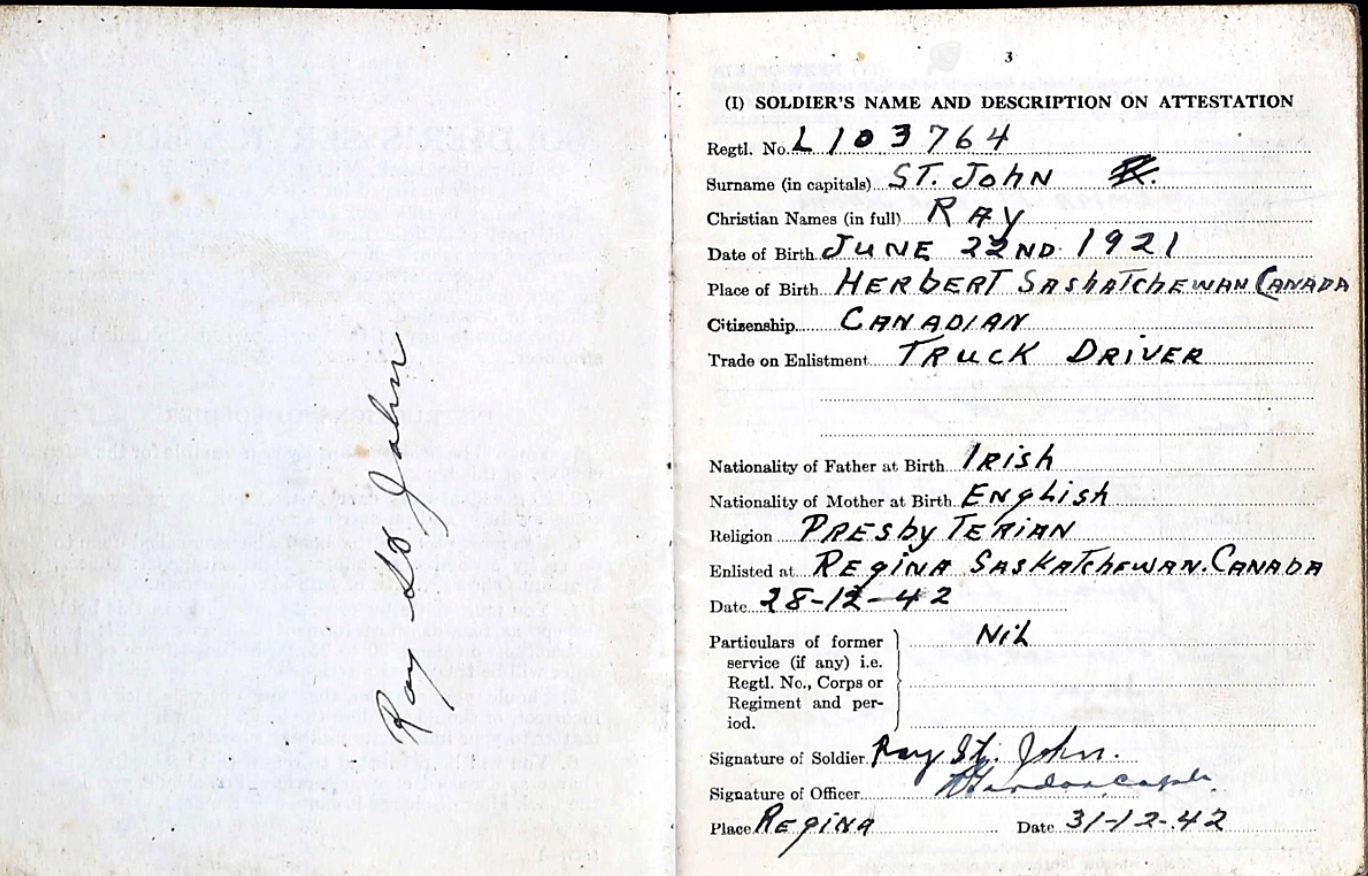 Ray St John
3
(I) SOLDIER'S NAME AND DESCRIPTION ON ATTESTATION
Regtl. No. L 103764
Surname (in capitals) ST. JOHN
Christian Names (in full) RAY
Date of Birth JUNE 22ND. 1921
Place of Birth HERBERT SASKATCHEWAN CANADA
Citizenship CANADIAN
Trade on Enlistment TRUCK DRIVER
Nationality of Father at Birth IRISH
Nationality of Mother at Birth ENGLISH
Religion PRESBYTERIAN
Enlisted at REGINA SASKATCHEWAN. CANADA
Date 28-12-42
Particulars of former NIL
service (if any) i.e.
Regtl. No., Corps or
Regiment and per-
iod.
Signature of Soldier Ray St. John.
Signature of Officer
Place REGINA Date 31-12-42